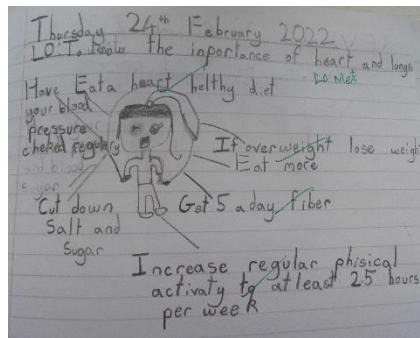 Thursday 24th February 2022
LO: To know the inportance of heart and lungs
LO Met
Have Eat a heart helthy diet
your blood
pressure
cheked regulary
and blood
Sugar
If overweight lose weight
Eat more
Cut down
Salt and
Sugar
Get 5 a day fiber
Increase regular phisical
activaty to at least 2.5 hours
per week